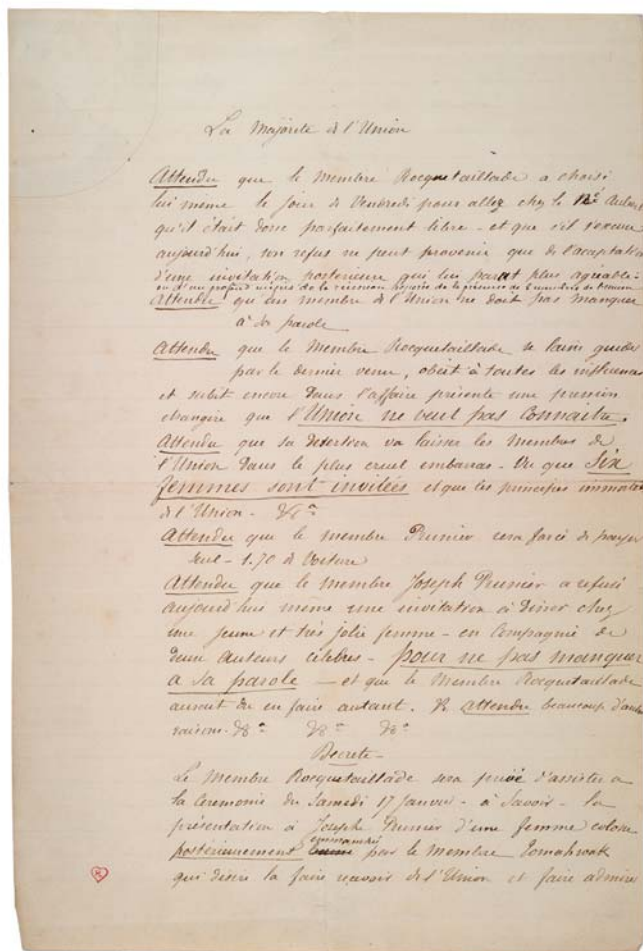 La Majorité de l'Union
Attendu que le Membre Rocquetaillade a choisi
lui même le jour de Vendredi pour aller chez le
qu'il était donc parfaitement libre - et que s'il s'excuse
aujourd'hui, son refus ne peut provenir que de l'acceptation
d'une invitation postérieure qui lui parait plus agréable -
ou d'un profond mépris de la réunion de la présence de 2 membres de l'Union
Attendu qu'un membre de l'Union ne doit pas manquer
à sa parole
Attendu que le Membre Rocquetaillade se laisse guider
par le dernier venu, obéit à toutes les influences
et subit encore dans l'affaire présente une pression
étrangère que l'Union ne veut pas connaitre.
Attendu que sa désertion va laisser les membres de
l'Union dans le plus cruel embarras - Vu que Six
femmes sont invitées et que les principes immortels
de l'Union - &c a
Attendu que le membre Prunier sera forcé de payer
seul - 1.70 de Voiture
Attendu que le membre Joseph Prunier a refusé
aujourd'hui même une invitation à diner chez
une jeune et très jolie femme - en Compagnie de
deux auteurs célèbres - pour ne pas manquer
a sa parole - et que le Membre Rocquetaillade
aurait du en faire autant. Et attendu beaucoup d'autres
raisons - &c a &c a &c a
Decrete -
Le Membre Rocquetaillade sera privé d'assister a
la Ceremonie du Samedi 17 Janvier - à Savoir - la
présentation à Joseph Prunier d'une femme colosse
emmanchée
postérieurement par le Membre Tomahwak
qui désire la faire recevoir de l'Union et faire admirer